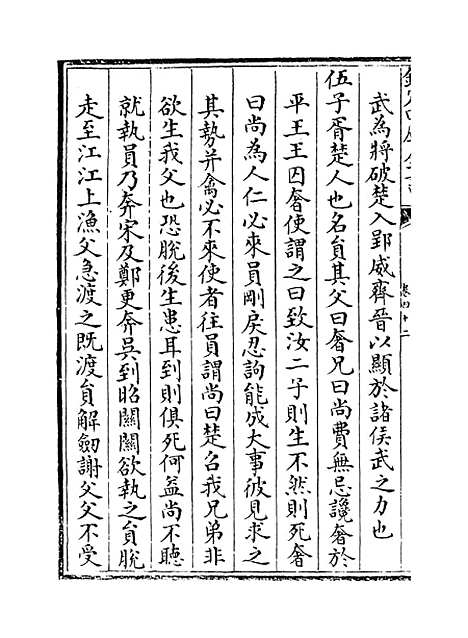 武為將破楚入郢威齊晉以顯於諸侯武之力也
伍子胥楚人也名員其父曰奢兄曰尚費無忌讒奢於
平王王囚奢使謂之曰致汝二子則生不然則死奢
曰尚為人仁必來員剛戾忍詢能成大事彼見求之
其勢并禽必不來使者往員謂尚曰楚名我兄弟非
欲生我父也恐脫後生患耳到則俱死何益尚不聽
就執員乃奔宋及鄭更奔吳到昭關關欲執之員脫
走至江江上漁父急渡之既渡員解劒謝父父不受
卷四十二